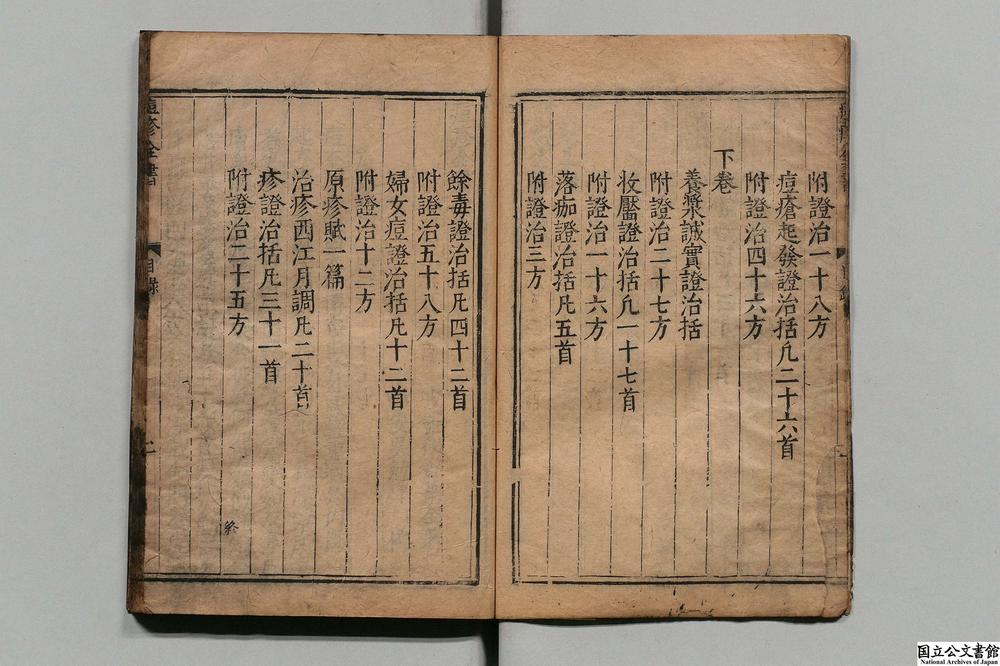 附證治一十八方
痘瘡起發證治括凡二十六首
附證治四十六方
下卷
養漿誠實證治括
附證治二十七方
收靨證治括凡一十七首
附證治一十六方
落痂證治括凡五首
附證治三方
餘毒證治括凡四十二首
附證治五十八方
婦女痘證治括凡十二首
附證治十二方
原疹賦一篇
治疹西江月調凡二十首
疹證治括凡三十一首
附證治二十五方
終
痘疹全書
目錄
国立公文書館
National Archives of Japan